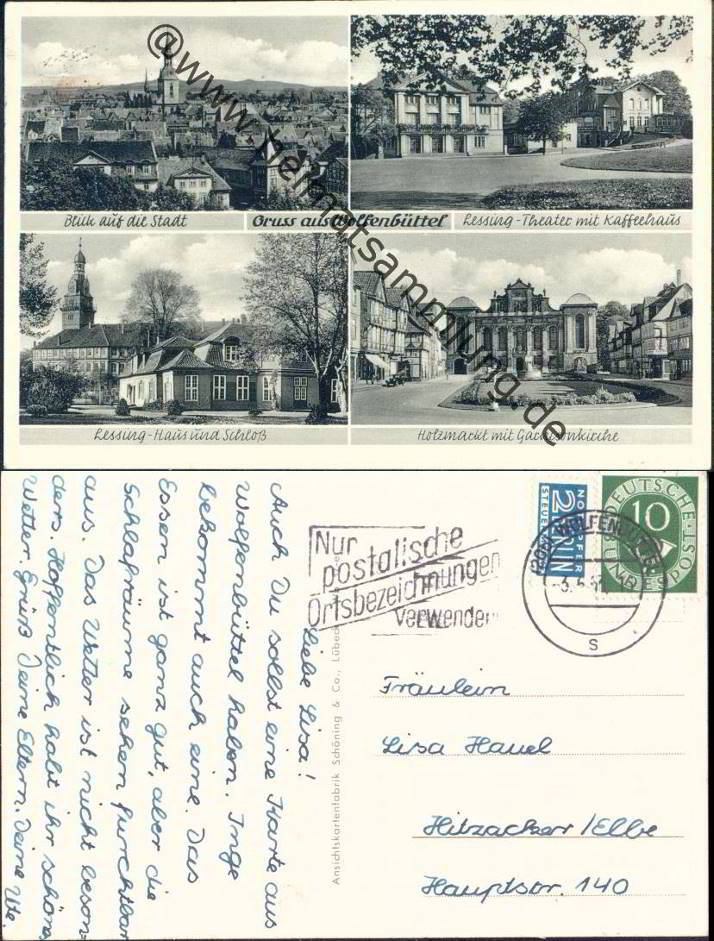 Blick auf die Stadt
Gruss aus Wolfenbüttel
Lessing-Theater mit Kaffeehaus
Lessing-Haus und Schloß
Holzmarkt mit Garnisonkirche
@www.heimatsammlung.de
Liebe Lisa!
Auch Du sollst eine Karte aus
Wolfenbüttel haben. Inge
bekommt auch eine. Das
Essen ist ganz gut, aber die
Schlafräume sehen furchtbar
aus. Das Wetter ist nicht beson=
ders. Hoffentlich habt ihr schönes
Wetter. Grüß Deine Eltern. Deine Ute.
Ansichtskartenfabrik Schöning & Co., Lübeck
Nur
postalische
Ortsbezeichnungen
verwenden
NOTOPFER
2
BERLIN
STEUERMARKE
DEUTSCHE
10
BUNDESPOST
WOLFENBÜTTEL
S
Fräulein
Lisa Hauel
Hitzacker/Elbe
Hauptstr. 140